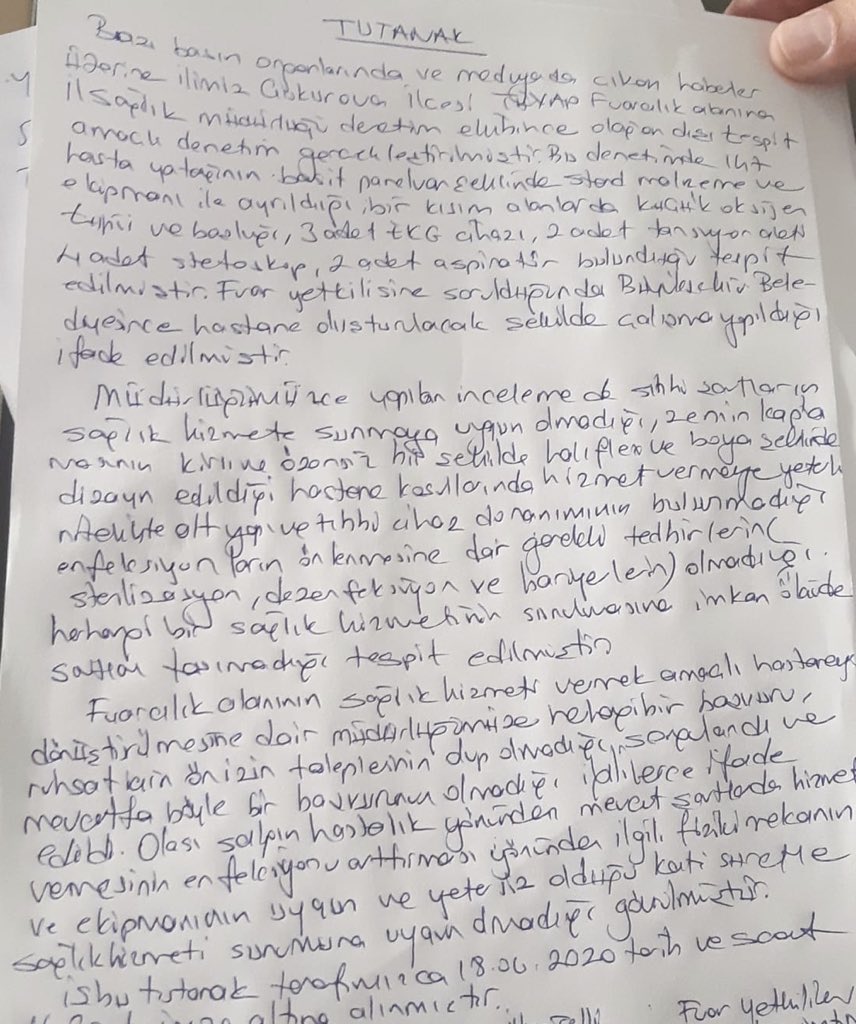 TUTANAK
Bazı basın organlarında ve medyada çıkan haberler
üzerine ilimiz Çukurova ilçesi TÜYAP Fuarcılık alanına
il Sağlık müdürlüğü denetim ekibince olağan dışı tespit
amaçlı denetim gerçekleştirilmiştir. Bu denetimde 147
hasta yatağının basit paravan şeklinde stand malzeme ve
ekipmanı ile ayrıldığı, bir kısım alanlarda küçük oksijen
tüpü ve başlığı, 3 adet EKG cihazı, 2 adet tansiyon aleti
4 adet stetoskop, 2 adet aspiratör bulunduğu tespit
edilmiştir. Fuar yetkilisine sorulduğunda Büyükşehir Bele-
diyesince hastane oluşturulacak şekilde çalışma yapıldığı
ifade edilmiştir.
Müdürlüğümüzce yapılan incelemede sıhhi şartların
sağlık hizmete sunmaya uygun olmadığı, zemin kapla
masının kirli ve özensiz bir şekilde halıflex ve boya şeklinde
dizayn edildiği hastane koşullarında hizmet vermeye yeterli
nitelikte alt yapı ve tıbbi cihaz donanımının bulunmadığı
enfeksiyonların önlenmesine dair gerekli tedbirlerin(
sterilizasyon, dezenfeksiyon ve bariyerlerin) olmadığı,
herhangi bir sağlık hizmetinin sunulmasına imkan ölçüde
şartları taşımadığı tespit edilmiştir
Fuarcılık alanının sağlık hizmeti vermek amaçlı hastaneye
dönüştürülmesine dair müdürlüğümüze herhangi bir başvuru,
ruhsat için ön izin taleplerinin olup olmadığı sorgulandı ve
mevcutta böyle bir başvurunun olmadığı ilgililerce ifade
edildi. Olası salgın hastalık yönünden mevcut şartlarda hizmet
vermesinin enfeksiyonu arttırması yönünden ilgili fiziki mekanın
ve ekipmanının uygun ve yetersiz olduğu kati suretle
sağlık hizmeti sunumuna uygun olmadığı görülmüştür.
işbu tutanak tarafımızca 18.06.2020 tarih ve saat
altına alınmıştır.
Fuar Yetkilileri